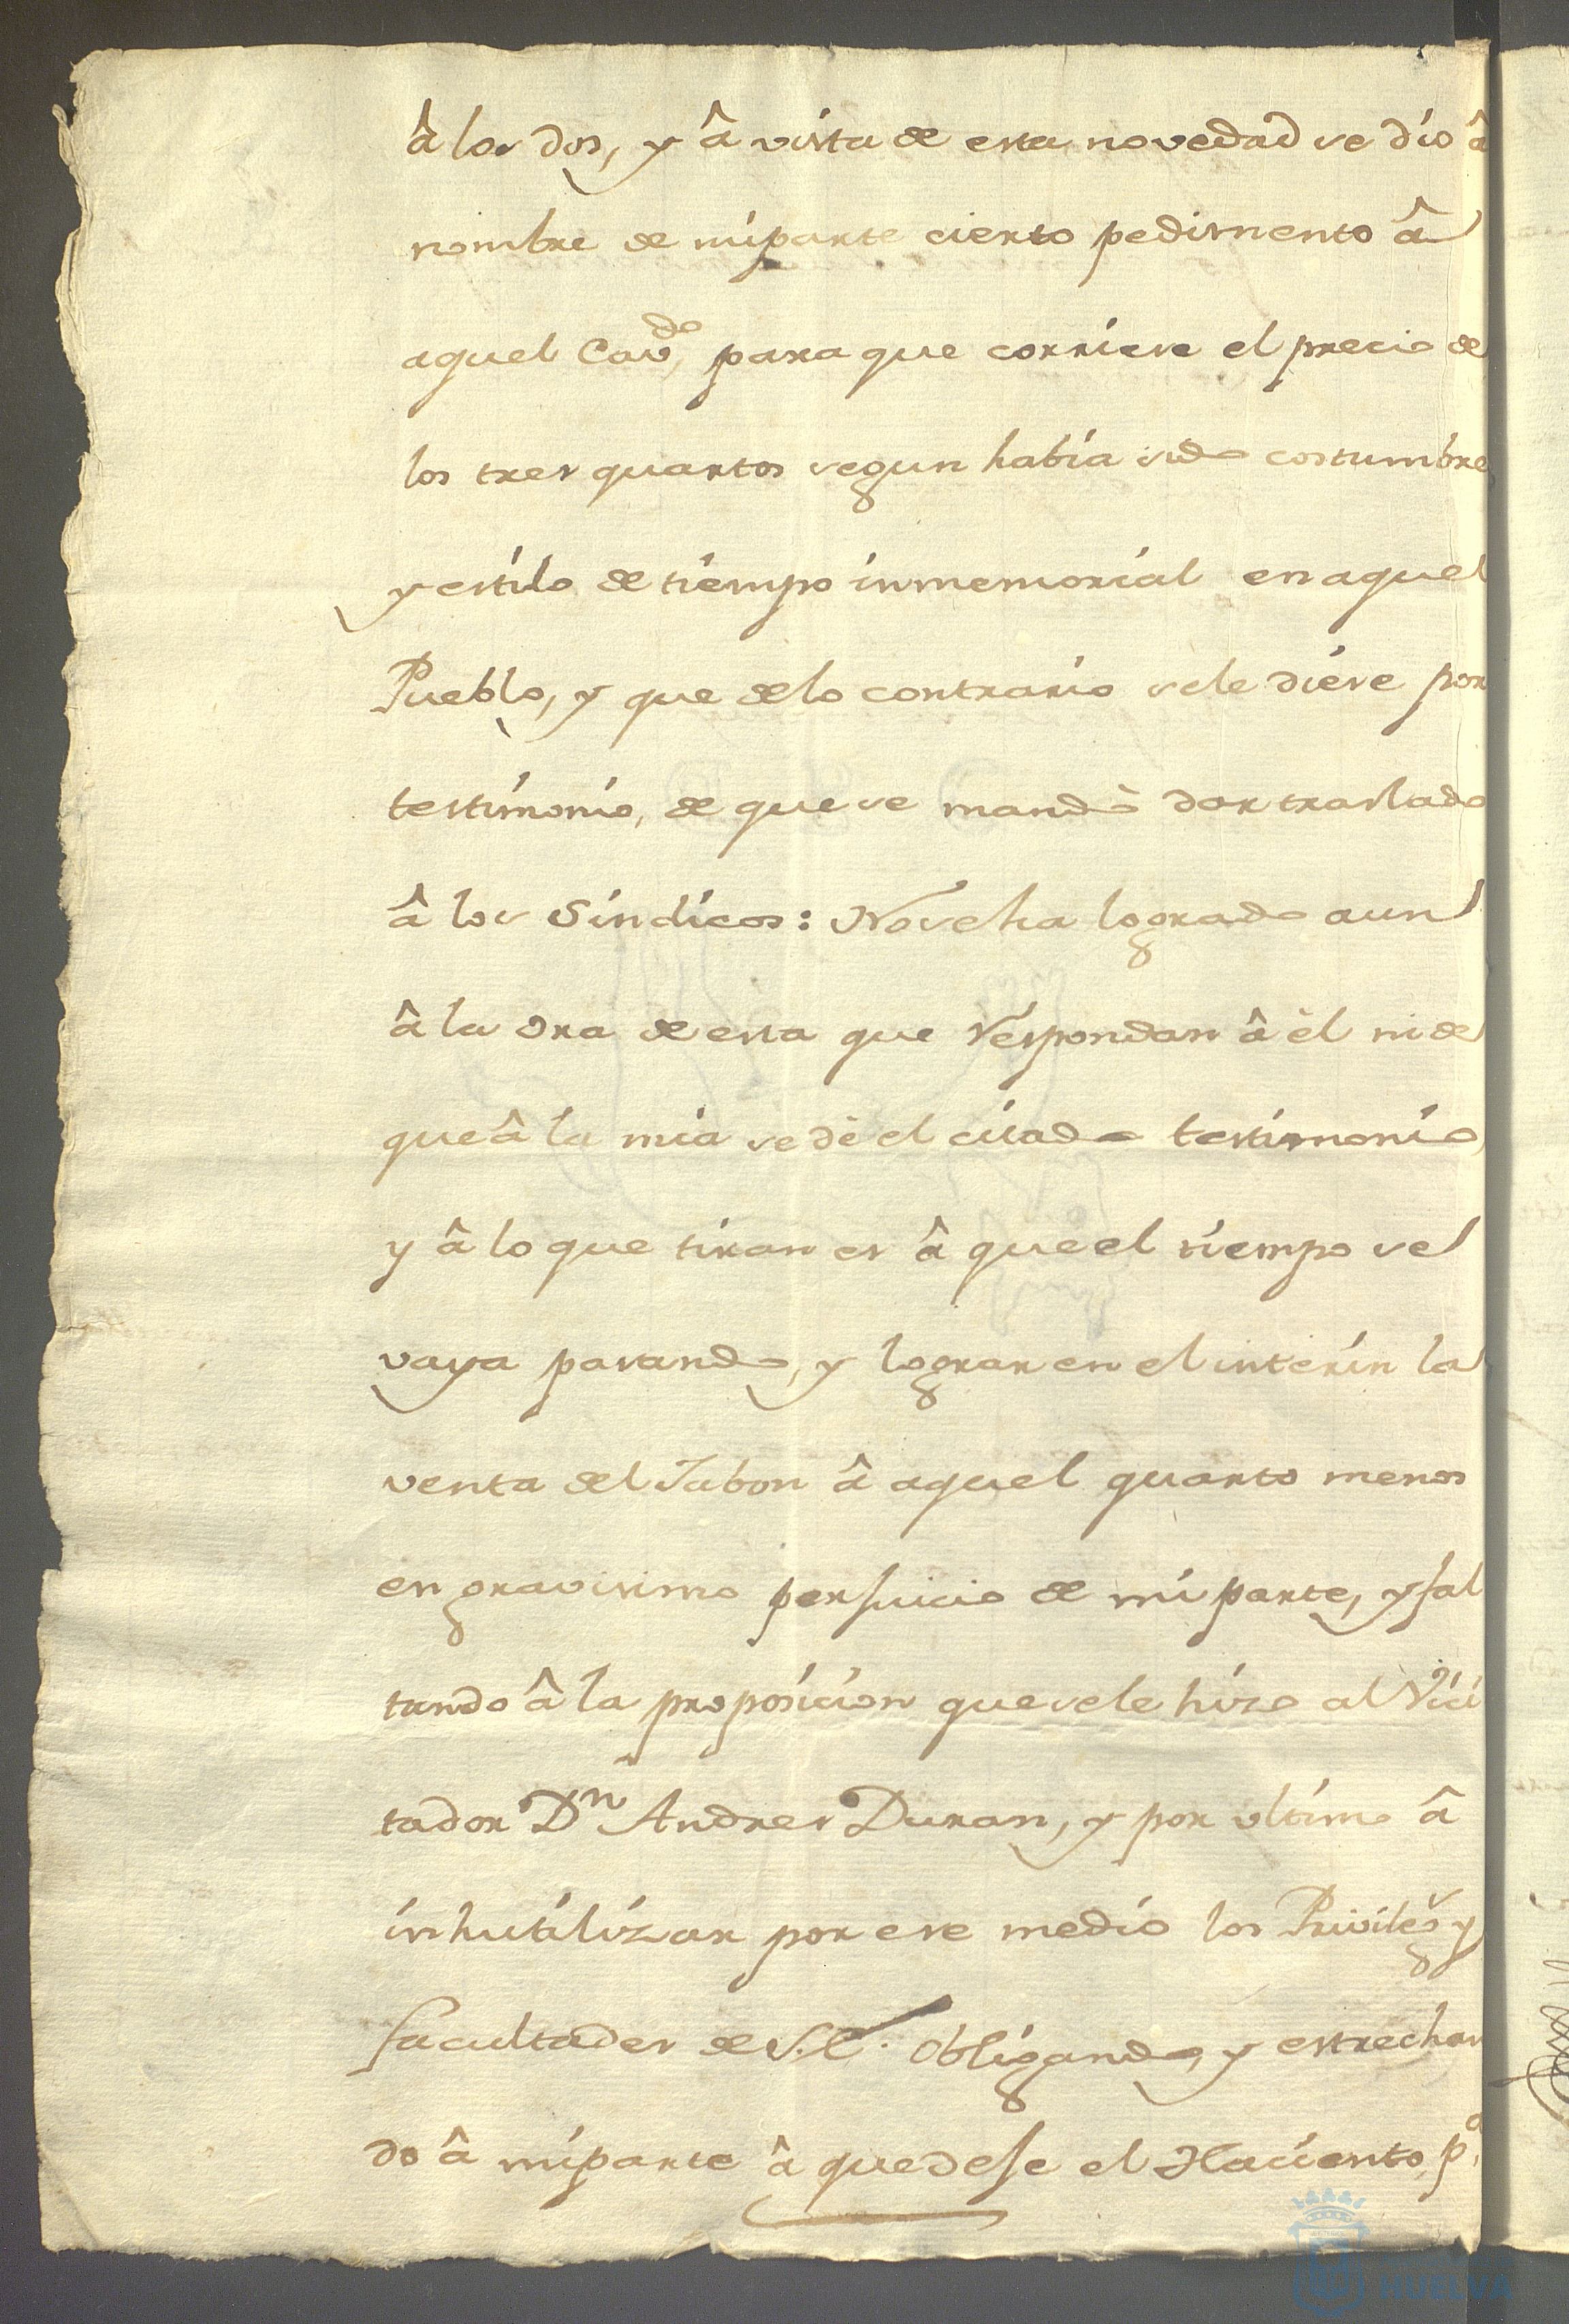 â los dos, y â vista de esta novedad se dió â
nombre de mi parte cierto pedimento â
aquel Cav.do para que corriese el precio de
los tres quartos segun había sido costumbre
y estilo de tiempo inmemorial en aquel
Pueblo, y que de lo contrario se le diese por
testimonio, de que se mandò dar traslado
â los Síndicos: No se ha logrado aun
â la ora de esta que respondan â èl ni de
que â la mia se dè el citado testimonio,
y â lo que tiran es â que el tiempo se
vaya pasando, y lograr en el interín la
venta del Jabon â aquel quarto menos
en gravisimo perjuicio de mi parte, y fal
tando â la proposicion que se le hizo al Vici
tador Dn Andres Duran, y por ultimo â
inhutilizar por ese medio los Privileg.s y
facultades de S.E. obligando, y estrechan
do â mi parte â que deje el Haciento, p.a
HUELVA